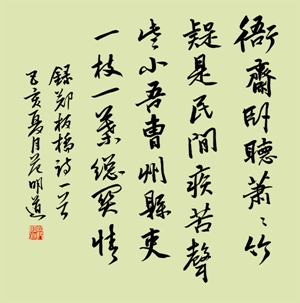 衙齋臥聽蕭〻竹
疑是民間疾苦聲
些小吾曹州縣吏
一枝一葉總関情
錄鄭板橋詩一首
己亥夏月范明道